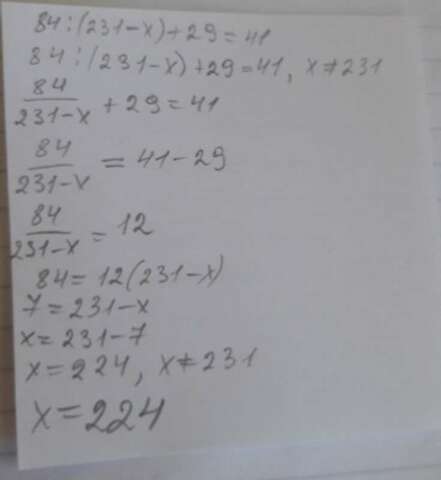 84:(231-x)+29=41
84:(231-x)+29=41, x≠231
84/(231-x) + 29 = 41
84/(231-x) = 41-29
84/(231-x) = 12
84=12(231-x)
7=231-x
x=231-7
x=224, x≠231
x=224